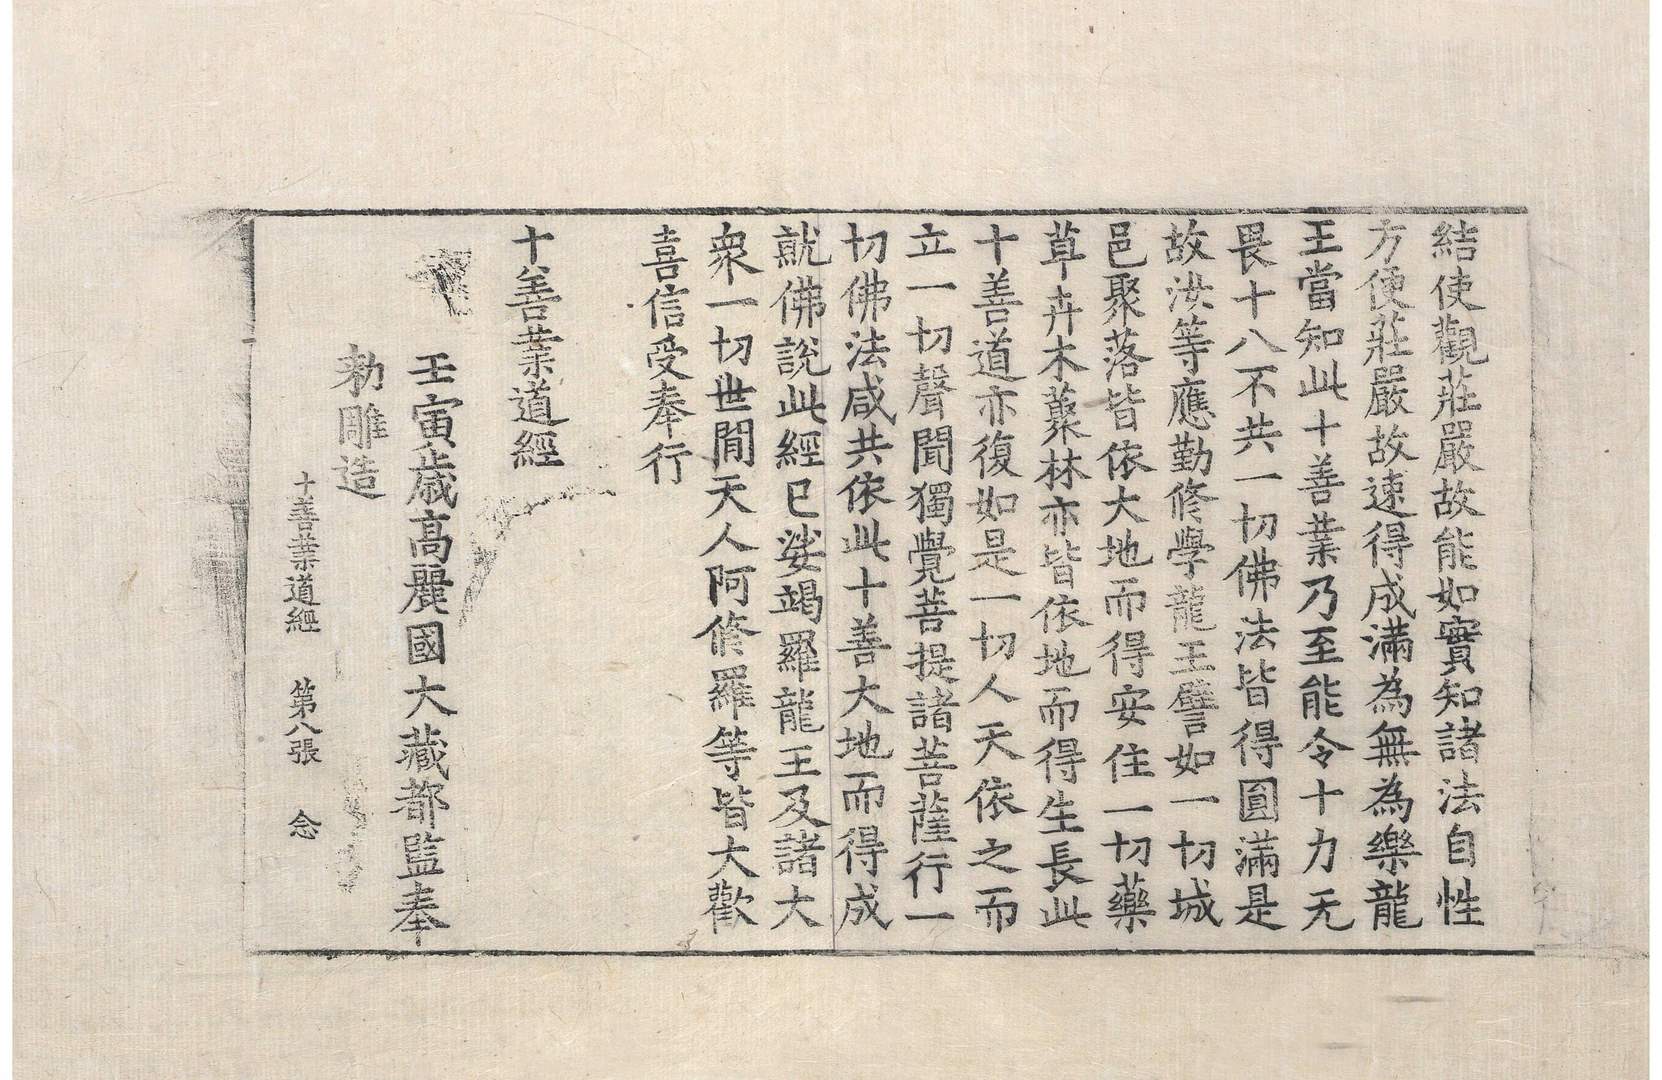 結使觀莊嚴故能如實知諸法自性
方便莊嚴故速得成滿為無為樂龍
王當知此十善業乃至能令十力无
畏十八不共一切佛法皆得圓滿是
故汝等應勤修學龍王譬如一切城
邑聚落皆依大地而得安住一切藥
草卉木藂林亦皆依地而得生長此
十善道亦復如是一切人天依之而
立一切聲聞獨覺菩提諸菩薩行一
切佛法咸共依此十善大地而得成
就佛說此經已娑竭羅龍王及諸大
衆一切世閒天人阿修羅等皆大歡
喜信受奉行
十善業道經
壬寅歲高麗國大藏都監奉
勑雕造
十善業道經 第八張 念